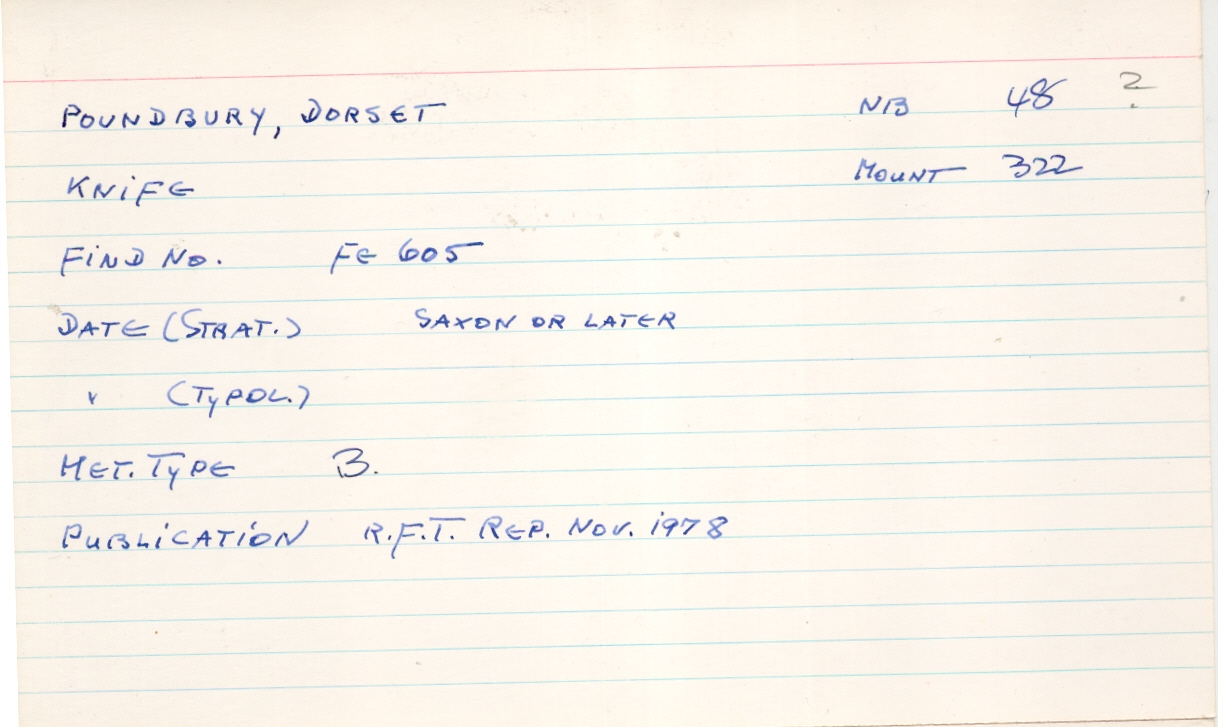 POUNDBURY, DORSET NB 48 ?
KNiFE MOUNT 322
FiND No. FE 605
DATE (STRAT.) SAXON OR LATER
" (TYPOL.)
MET. TYPE B.
PUBLiCATiON R.F.T. REP. NOV. 1978